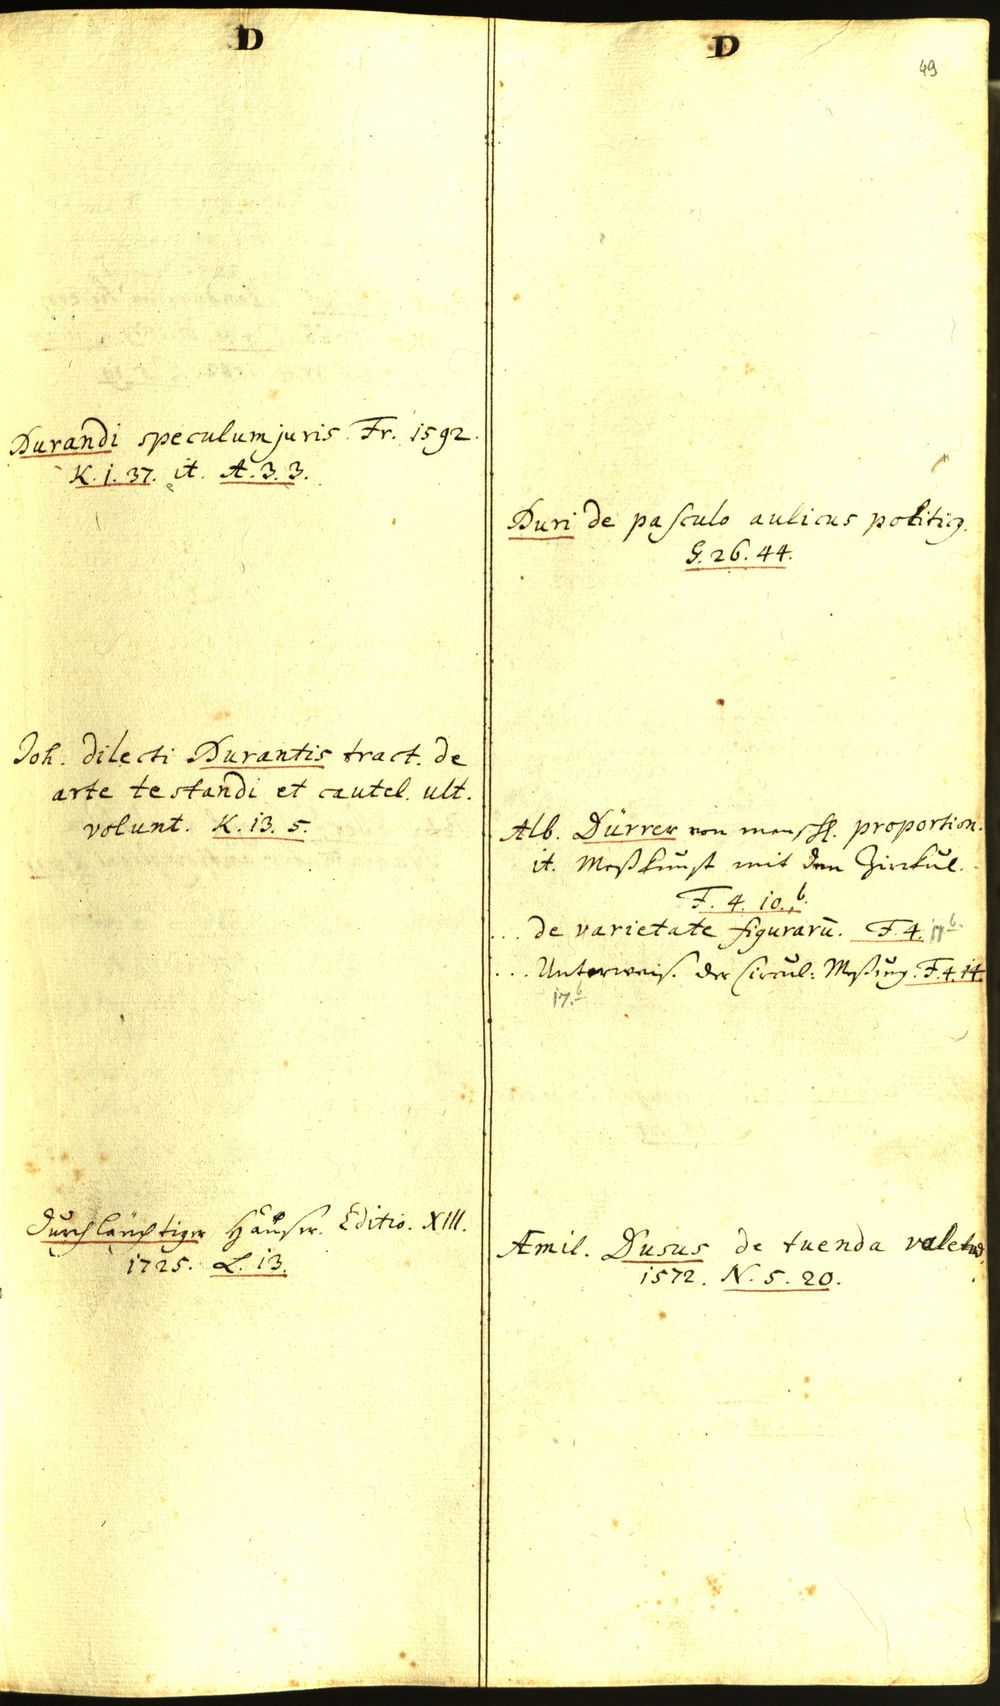 D
Durandi speculum juris. Fr. 1592.
K. 1. 37. it. A. 3. 3.
Joh. dilecti Durantis tract. de
arte testandi et cautel. ult.
volunt. K. 13. 5.
Durchläuchtiger Häuser. Editio. XIII.
1725. L. 13.
D
49
Duri de pasculo aulicus politicq.
G. 26. 44.
Alb. Dürrer von menschl. proportion.
it. Meßkunst mit dem Zirckul.
F. 4. 10. b.
... de varietate figurarū. F. 4. 17 b.
... Unterweis. der Circul: Meßung. F. 4. 14.
17. b
Æmil. Dusus de tuenda valetud.
1572. N. 5. 20.